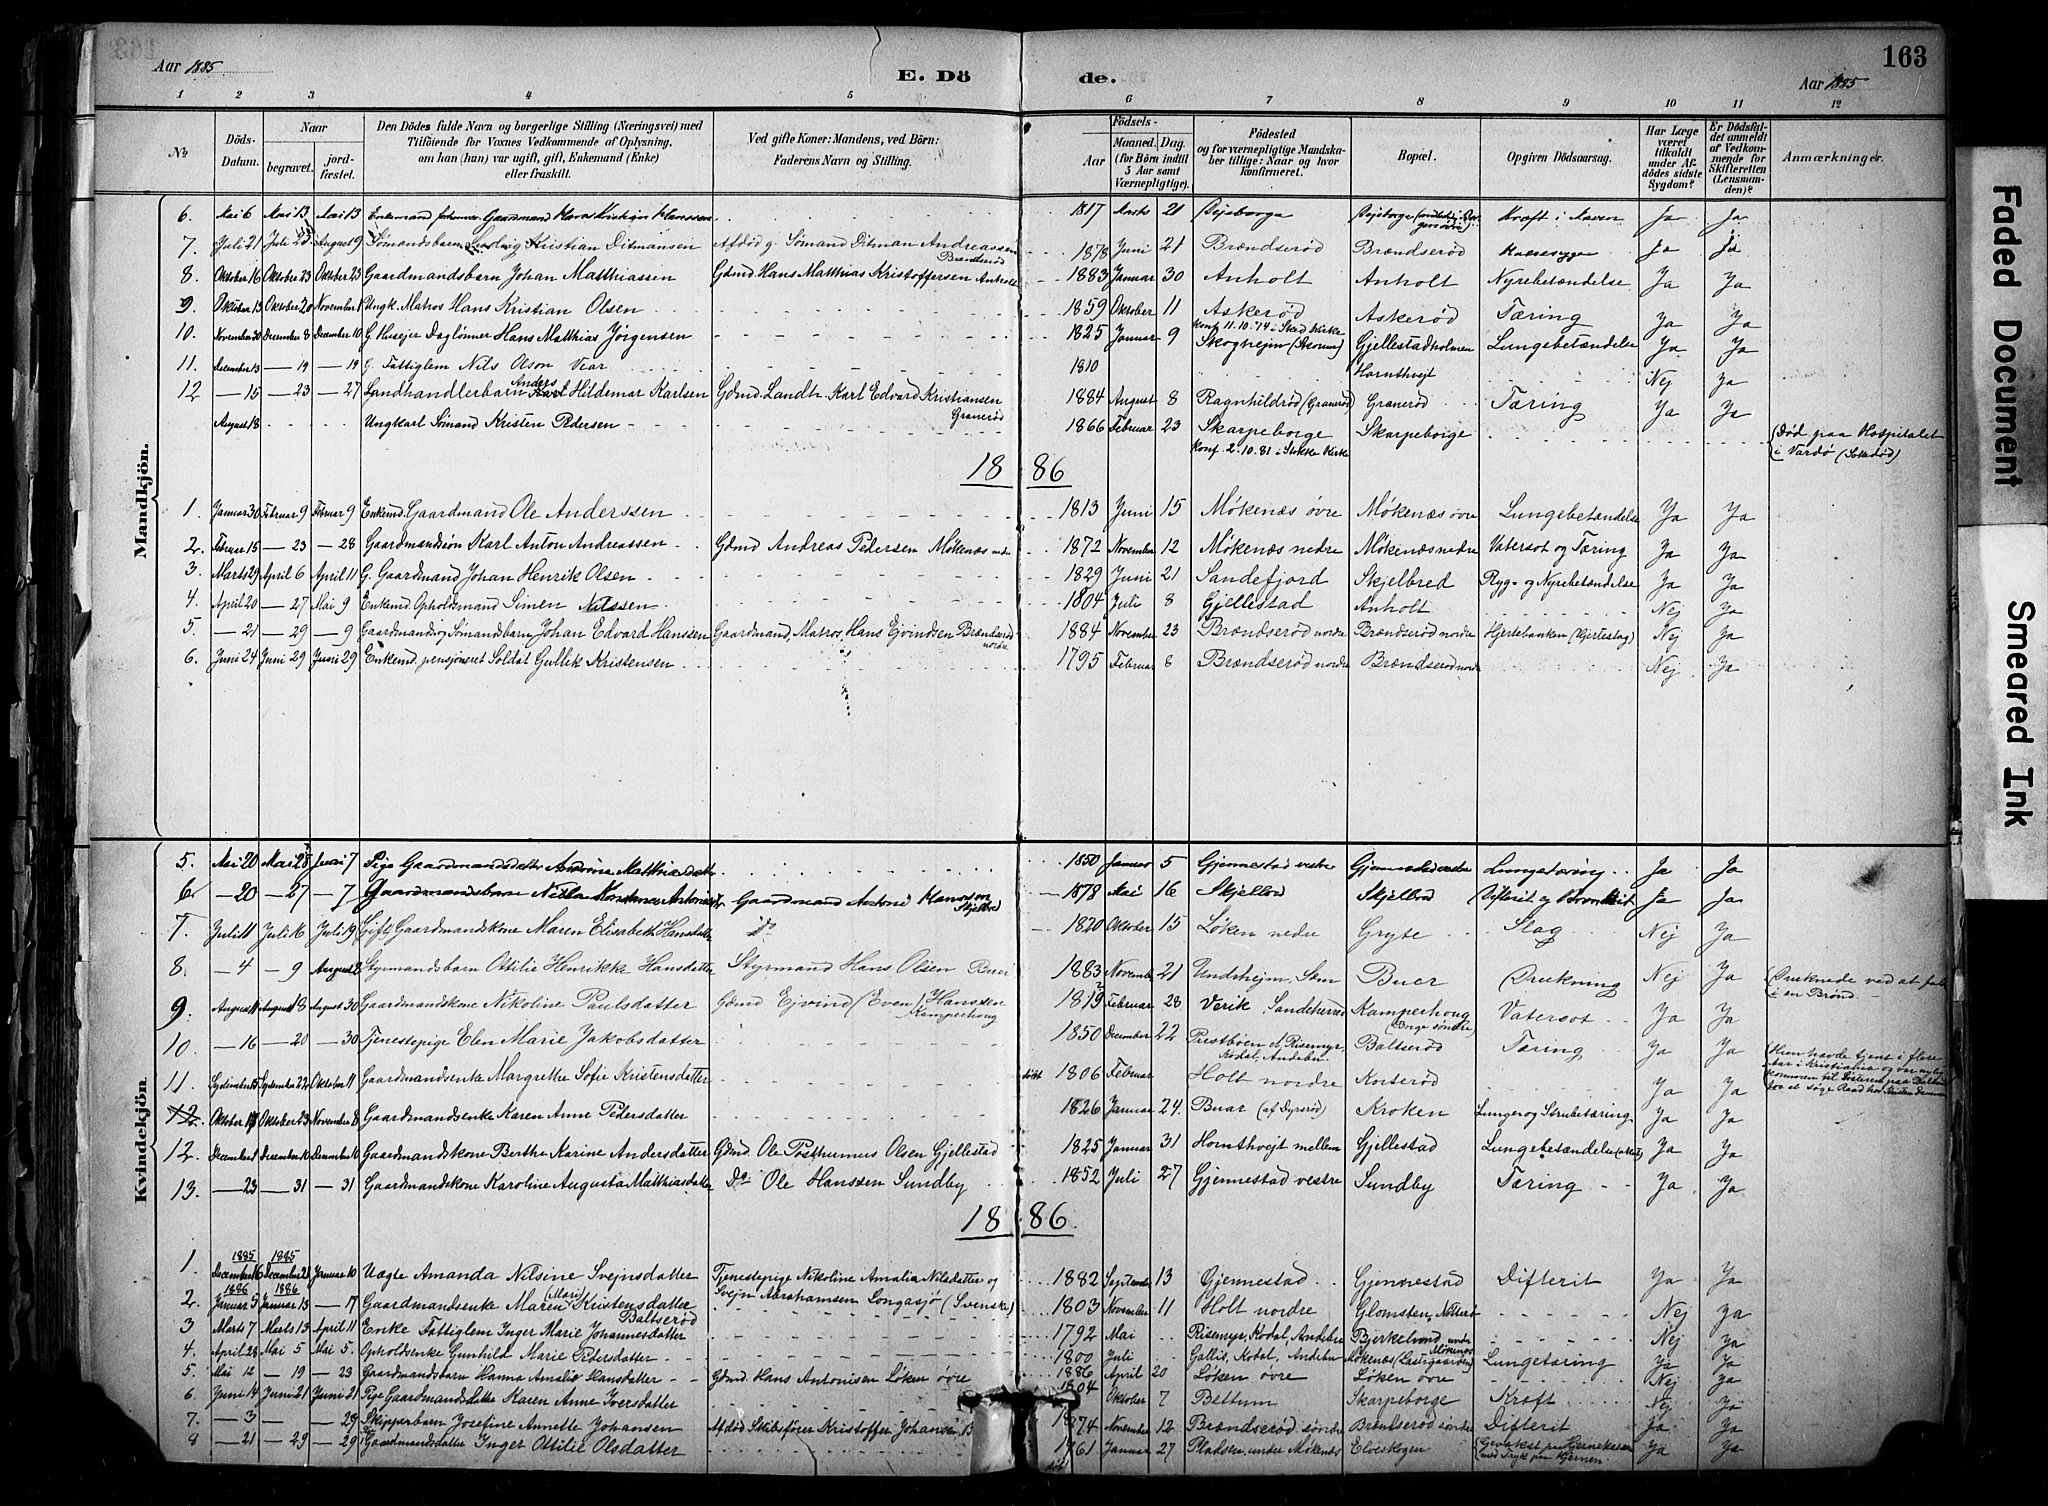 Aar 1885
E. Dö
de.
Aar 1885
163
1 2 3 4 5 6 7 8 9 10 11 12
No
Döds-Datum.
Naar
begravet.
jord-fæstet.
Den Dödes fulde Navn og borgerlige Stilling (Næringsvei) med
Tilföiende for Voxnes Vedkommende af Oplysning,
om han (hun) var ugift, gift, Enkemand (Enke)
eller fraskilt.
Ved gifte Koner: Mandens, ved Börn:
Faderens Navn og Stilling.
Födsels-
Aar
Maaned. (for Börn indtil 5 Aar samt Værnepligtige).
Dag.
Födested
og for værnepligtige Mandska-
ber tillige: Naar og hvor
konfirmeret.
Bopæl.
Opgiven Dödsaarsag.
Har Læge været tilkaldt under Af-dödes sidste Sygdom?
Er Dödsfal-det anmeldt af Vedkom-mende for Skifteretten (Lensman-den)?
Anmærkninger.
Mandkjön.
6. Mai 6 Mai 13 Mai 13 Enkemand Gaardmand Hans Kristian Hanssen 1817 Marts 21 Bejeborge Bejeborge Kræft i Maven Ja Ja
7. Juli 21 Juli August 9 Sømandsbarn Ludvig Kristian Ditmansen Afdød g. Sømand Ditman Andreassen Brændserød 1878 Juni 21 Brændserød Brændserød Ja Ja
8. Oktober 16 Oktober 23 Oktober 23 Gaardmandsbarn Johan Matthiassen Gdmd. Hans Matthias Kristoffersen Anholt 1883 Januar 30 Anholt Anholt Nyrebetændelse Ja Ja
9. Oktober 13 Oktober 20 November 1 Ungk. Matros Hans Kristian Olsen 1859 Oktober 11 Askerød Askerød Tæring Ja Ja
konf. 11.10.74 i Skee Kirke
10. November 30 December 8 December 10 G. Husejer Daglønner Hans Matthias Jørgensen 1825 Januar 9 Skoghejm Gjellestadholmen Lungebetændelse Ja Ja
11. December 13 — 19 — 19 G. Fattiglem Nils Olson Vear 1810 Hornthvejt Nej Ja
12 — 15 — 23 — 27 Landhandlerbarn Anders Hildemar Karlsen Gdmd. Landh. Karl Edvard Kristiansen Granerød 1884 August 8 Ragnhildrød (Granerød) Granerød Tæring Ja Ja
August 18 Ungkarl Sømand Kristen Pedersen 1866 Februar 23 Skarpeborge Skarpeborge
konf. 2.10.81 i Stokke Kirke
(Død paa Hospitalet
i Vardø
1886
1. Januar 30 Februar 9 Februar 9 Enkemd. Gaardmand Ole Anderssen 1813 Juni 15 Møkenæs øvre Møkenæs øvre Lungebetændelse Ja Ja
2. Februar 15 — 23 — 28 Gaardmandssøn Karl Anton Andreassen Gdmd Andreas Pedersen Møkenæs nedre 1872 November 12 Møkenæs nedre Møkenæs nedre Vatersot og Tæring Ja Ja
3. Marts 29 April 6 April 11 G. Gaardmand Johan Henrik Olsen 1829 Juni 21 Sandefjord Skjelbred Ryg- og Nyrebetændelse Ja Ja
4. April 20 — 27 Mai 9 Enkemd. Opholdsmand Simen Nilssen 1804 Juli 8 Gjellestad Anholt Nej Ja
5. — 21 — 29 — 9 Gaardmands og Sømandsbarn Johan Edvard Hanssen Gaardmand, Matros, Hans Ejvindsen Brændserød nordre 1884 November 23 Brændserød nordre Brændserød nordre Hjertebanken (Hjerteslag) Nej Ja
6. Juni 24 Juni 29 Juni 29 Enkemd. pensjoneret Soldat Gullik Kristensen 1795 Februar 8 Brændserød nordre Brændserød nordre Nej Ja
Kvindekjön.
5. Mai 20 Mai 28 Juni 7 Pige Gaardmandsdatter Andrine Matthiasdatter 1850 Januar 5 Gjennestad vestre Gjennestad vestre Lungetæring Ja Ja
6. — 20 — 27 — 7 Gaardmandsbarn Gaardmand Anton Hanssen Skjelbred 1878 Mai 16 Skjelbred Skjelbred Difterit og Ja Ja
7. Juli 11 Juli 16 Juli 19 Gift Gaardmandskone Maren Elisabeth Hansdatter 1820 Oktober 15 Løken nedre Gryte Slag Nej Ja
8. — 4 — 9 August 2 Styrmandsbarn Ottilie Henrikke Hansdatter Styrmand Hans Olsen Buer 1883 November 21 Buer Drukning Nej Ja
(Druknede ved at falde
i en Brønd.
9. August 11 August 18 August 30 Gaardmandskone Nikoline Paulsdatter Gdmd Ejvind (Even) Hanssen Kamperhoug 1819 Februar 28 Verik, Sandeherred Kamperhoug Vatersot Ja Ja
10 — 16 — 20 — 30 Tjenestepige Elen Marie Jakobsdatter 1850 December 22 Prestbøen Risemyr, Kodal, Andebu Baltserød Tæring Ja Ja
11. September 15 September 22 Oktober 11 Gaardmandsenke Margrethe Sofie Kristensdatter døbt 1806 Februar Holt nordre Korterød Ja Ja
(Hun havde tjent i flere
12. Oktober 18 Oktober 23 November 8 Gaardmandsenke Karen Anne Pedersdatter 1826 Januar 24. Buar (af Dyrsrød) Kroken Lunge og Strubetæring Ja Ja
12. December 1 December 10 December 10 Gaardmandskone Berthe Karine Andersdatter Gdmd. Ole Posthumus Olsen Gjellestad 1825 Januar 31 Hornthvejt mellem Gjellestad Lungebetændelse Ja Ja
13. — 23 — 31 — 31 Gaardmandskone Karoline Augusta Matthiasdatter Do Ole Hanssen Sundby 1852 Juli 27 Gjennestad vestre Sundby Tæring Ja Ja
1886.
1 1885 December 16 1885 December 21 Januar 10 Uægte Amanda Nilsine Svejnsdatter Tjenestepige Nikoline Amalia Nilsdatter og Svejn Abrahamsen Longasjø (Svenske) 1882 September 13 Gjennestad Gjennestad Difterit Ja Ja
2. 1886 Januar 5 1886 Januar 13 — 17 Gaardmandsenke Maren (Mari) Kristensdatter Baltserød 1803 November 11 Holt nordre Glomsten, Nøtterø Nej Ja
3 Marts 7 Marts 13 April 11 Enke Fattiglem Inger Marie Johannesdatter 1792 Mai Risemyr, Kodal, Andebu Bjerkelund under Møkenæs Nej Ja
4. April 28 Mai 5 Mai 5. Opholdsenke Gunhild Marie Pedersdatter 1800 Juli Gallis, Kodal, Andebu Møkenæs Lungetæring Ja Ja
5. Mai 12 — 19 — 23 Gaardmandsbarn Hanna Amalie Hansdatter Gdmd. Hans Antonisen Løken øvre 1886 April 20 Løken øvre Løken øvre Nej Ja
6 Juni 14 Juni 21 Juni 21 Pige Gaardmandsdatter Karen Anne Iversdatter 1804 Oktober 7 Bettum Skarpeborge Kræft Nej Ja
7. — 3 — 29 Skipperbarn Josefine Annette Johansen Afdød Skibsfører Kristoffer Johansen 1874 November 12 Brændserød søndre Brændserød søndre Difterit Ja Ja
8 — 21 — 29 — 29 Gaardmandsdatter Inger Ottilie Olsdatter 1861 Januar 27 Pladsen under Møkenæs Elveskogen Ja Ja
Faded Document
Smeared Ink